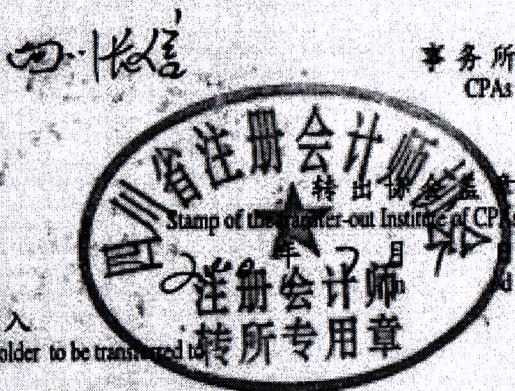 四川
事务所
CPAs
四川省注册会计师协会
转出协会盖章
Stamp of the transfer-out Institute of CPAs
年7月
注册会计师
转所专用章
入
older to be transferred to